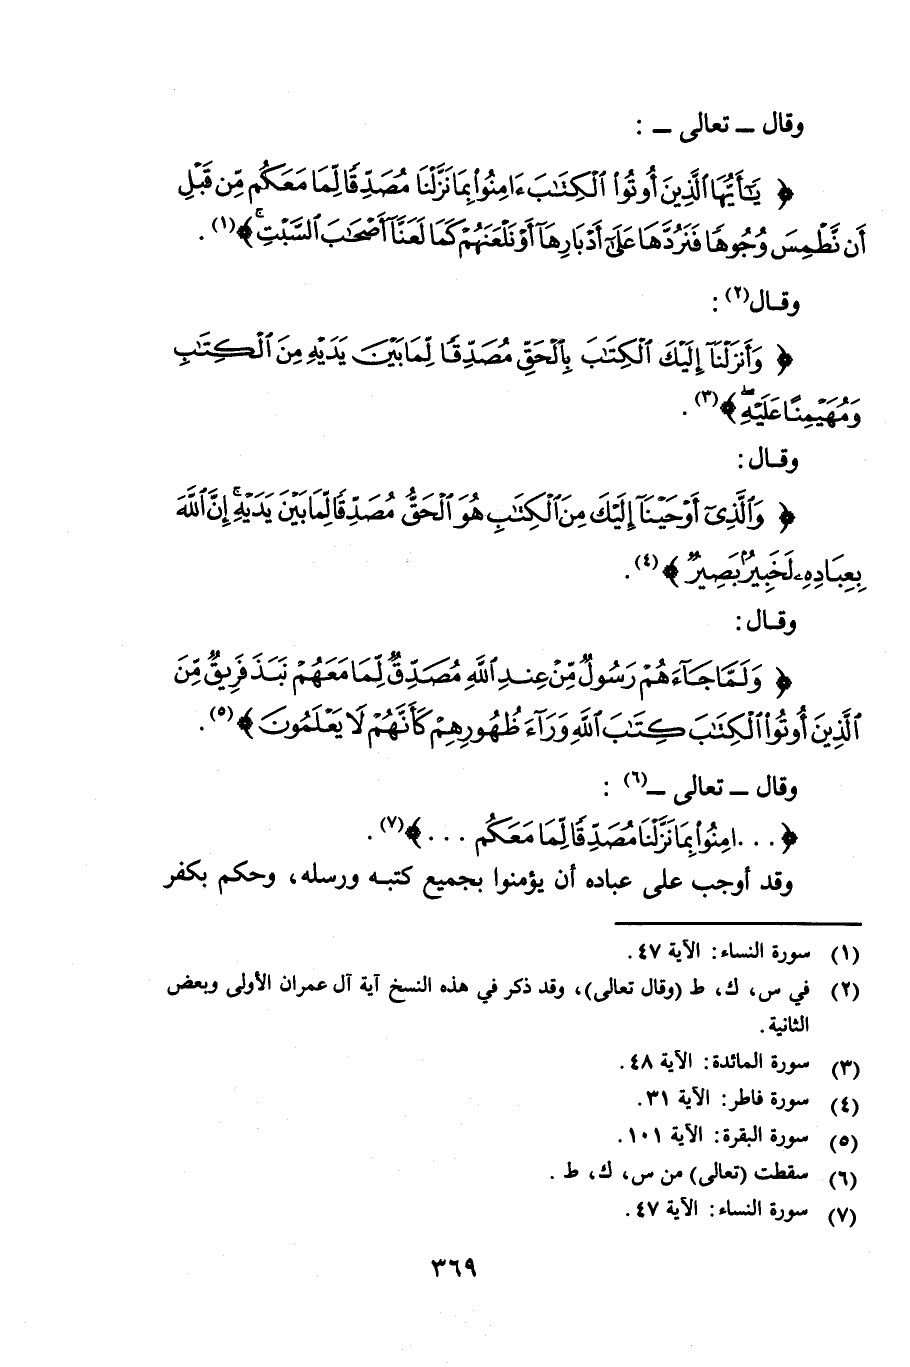 وقال ــ تعالى ــ :
﴿ يَٰٓأَيُّهَا ٱلَّذِينَ أُوتُوا۟ ٱلْكِتَٰبَ ءَامِنُوا۟ بِمَا نَزَّلْنَا مُصَدِّقًا لِّمَا مَعَكُم مِّن قَبْلِ
أَن نَّطْمِسَ وُجُوهًا فَنَرُدَّهَا عَلَىٰٓ أَدْبَارِهَآ أَوْ نَلْعَنَهُمْ كَمَا لَعَنَّآ أَصْحَٰبَ ٱلسَّبْتِ ۚ ﴾(١) .
وقـال(٢) :
﴿ وَأَنزَلْنَآ إِلَيْكَ ٱلْكِتَٰبَ بِٱلْحَقِّ مُصَدِّقًا لِّمَا بَيْنَ يَدَيْهِ مِنَ ٱلْكِتَٰبِ
وَمُهَيْمِنًا عَلَيْهِ ۖ ﴾(٣) .
وقـال :
﴿ وَٱلَّذِىٓ أَوْحَيْنَآ إِلَيْكَ مِنَ ٱلْكِتَٰبِ هُوَ ٱلْحَقُّ مُصَدِّقًا لِّمَا بَيْنَ يَدَيْهِ ۚ إِنَّ ٱللَّهَ
بِعِبَادِهِۦ لَخَبِيرٌۢ بَصِيرٌ ﴾(٤) .
وقـال :
﴿ وَلَمَّا جَآءَهُمْ رَسُولٌ مِّنْ عِندِ ٱللَّهِ مُصَدِّقٌ لِّمَا مَعَهُمْ نَبَذَ فَرِيقٌ مِّنَ
ٱلَّذِينَ أُوتُوا۟ ٱلْكِتَٰبَ كِتَٰبَ ٱللَّهِ وَرَآءَ ظُهُورِهِمْ كَأَنَّهُمْ لَا يَعْلَمُونَ ﴾(٥) .
وقال ــ تعالى ــ(٦) :
﴿ . . . امِنُوا۟ بِمَا نَزَّلْنَا مُصَدِّقًا لِّمَا مَعَكُم . . . ﴾(٧) .
وقد أوجب على عباده أن يؤمنوا بجميع كتبـه ورسله، وحكم بكفر
(١) سورة النساء: الآية ٤٧ .
(٢) في س، ك، ط (وقال تعالى)، وقد ذكر في هذه النسخ آية آل عمران الأولى وبعض
الثانية .
(٣) سورة المائدة: الآية ٤٨ .
(٤) سورة فاطر: الآية ٣١ .
(٥) سورة البقرة: الآية ١٠١ .
(٦) سقطت (تعالى) من س، ك، ط .
(٧) سورة النساء: الآية ٤٧ .
٣٦٩